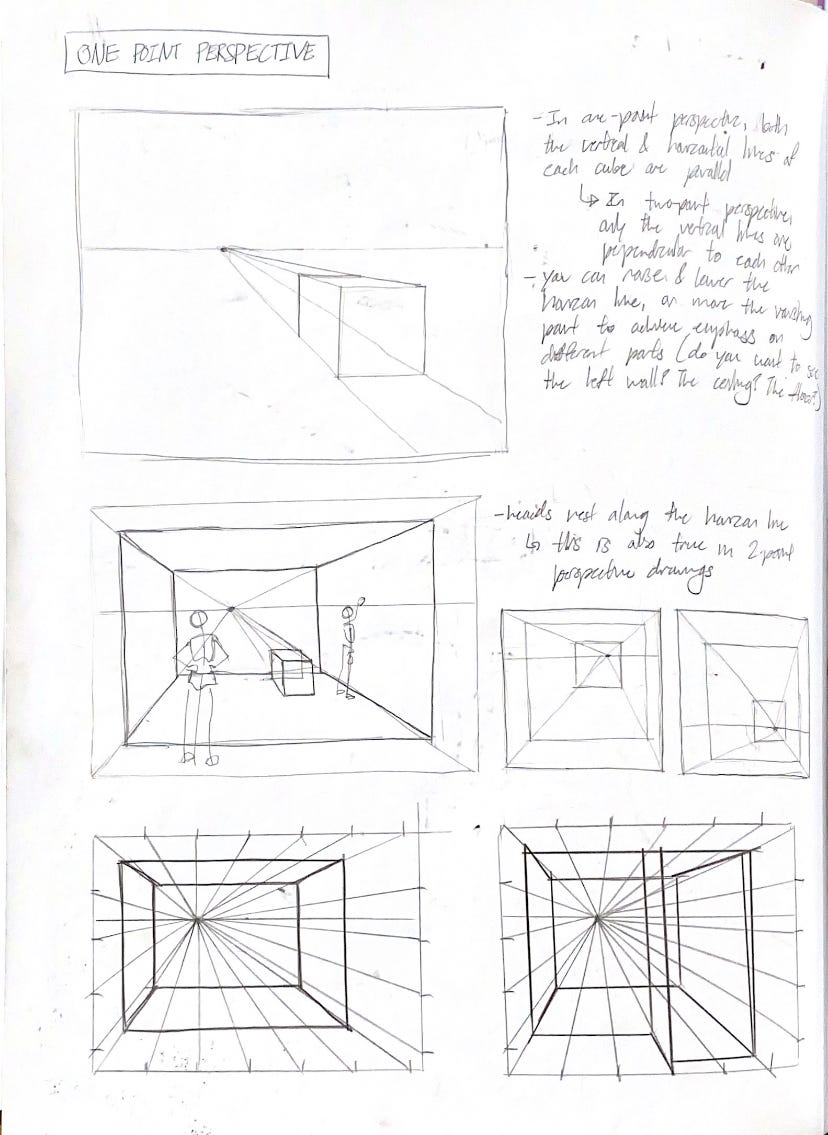 ONE POINT PERSPECTIVE
- In one-point perspective, both
the vertical & horizontal lines of
each cube are parallel
↳ In two-point perspective,
only the vertical lines are
perpendicular to each other
- you can raise & lower the
horizon line, or move the vanishing
point to achieve emphasis on
different parts (do you want to see
the left wall? The ceiling? The floor?)
- heads rest along the horizon line
↳ this is also true in 2-point
perspective drawings